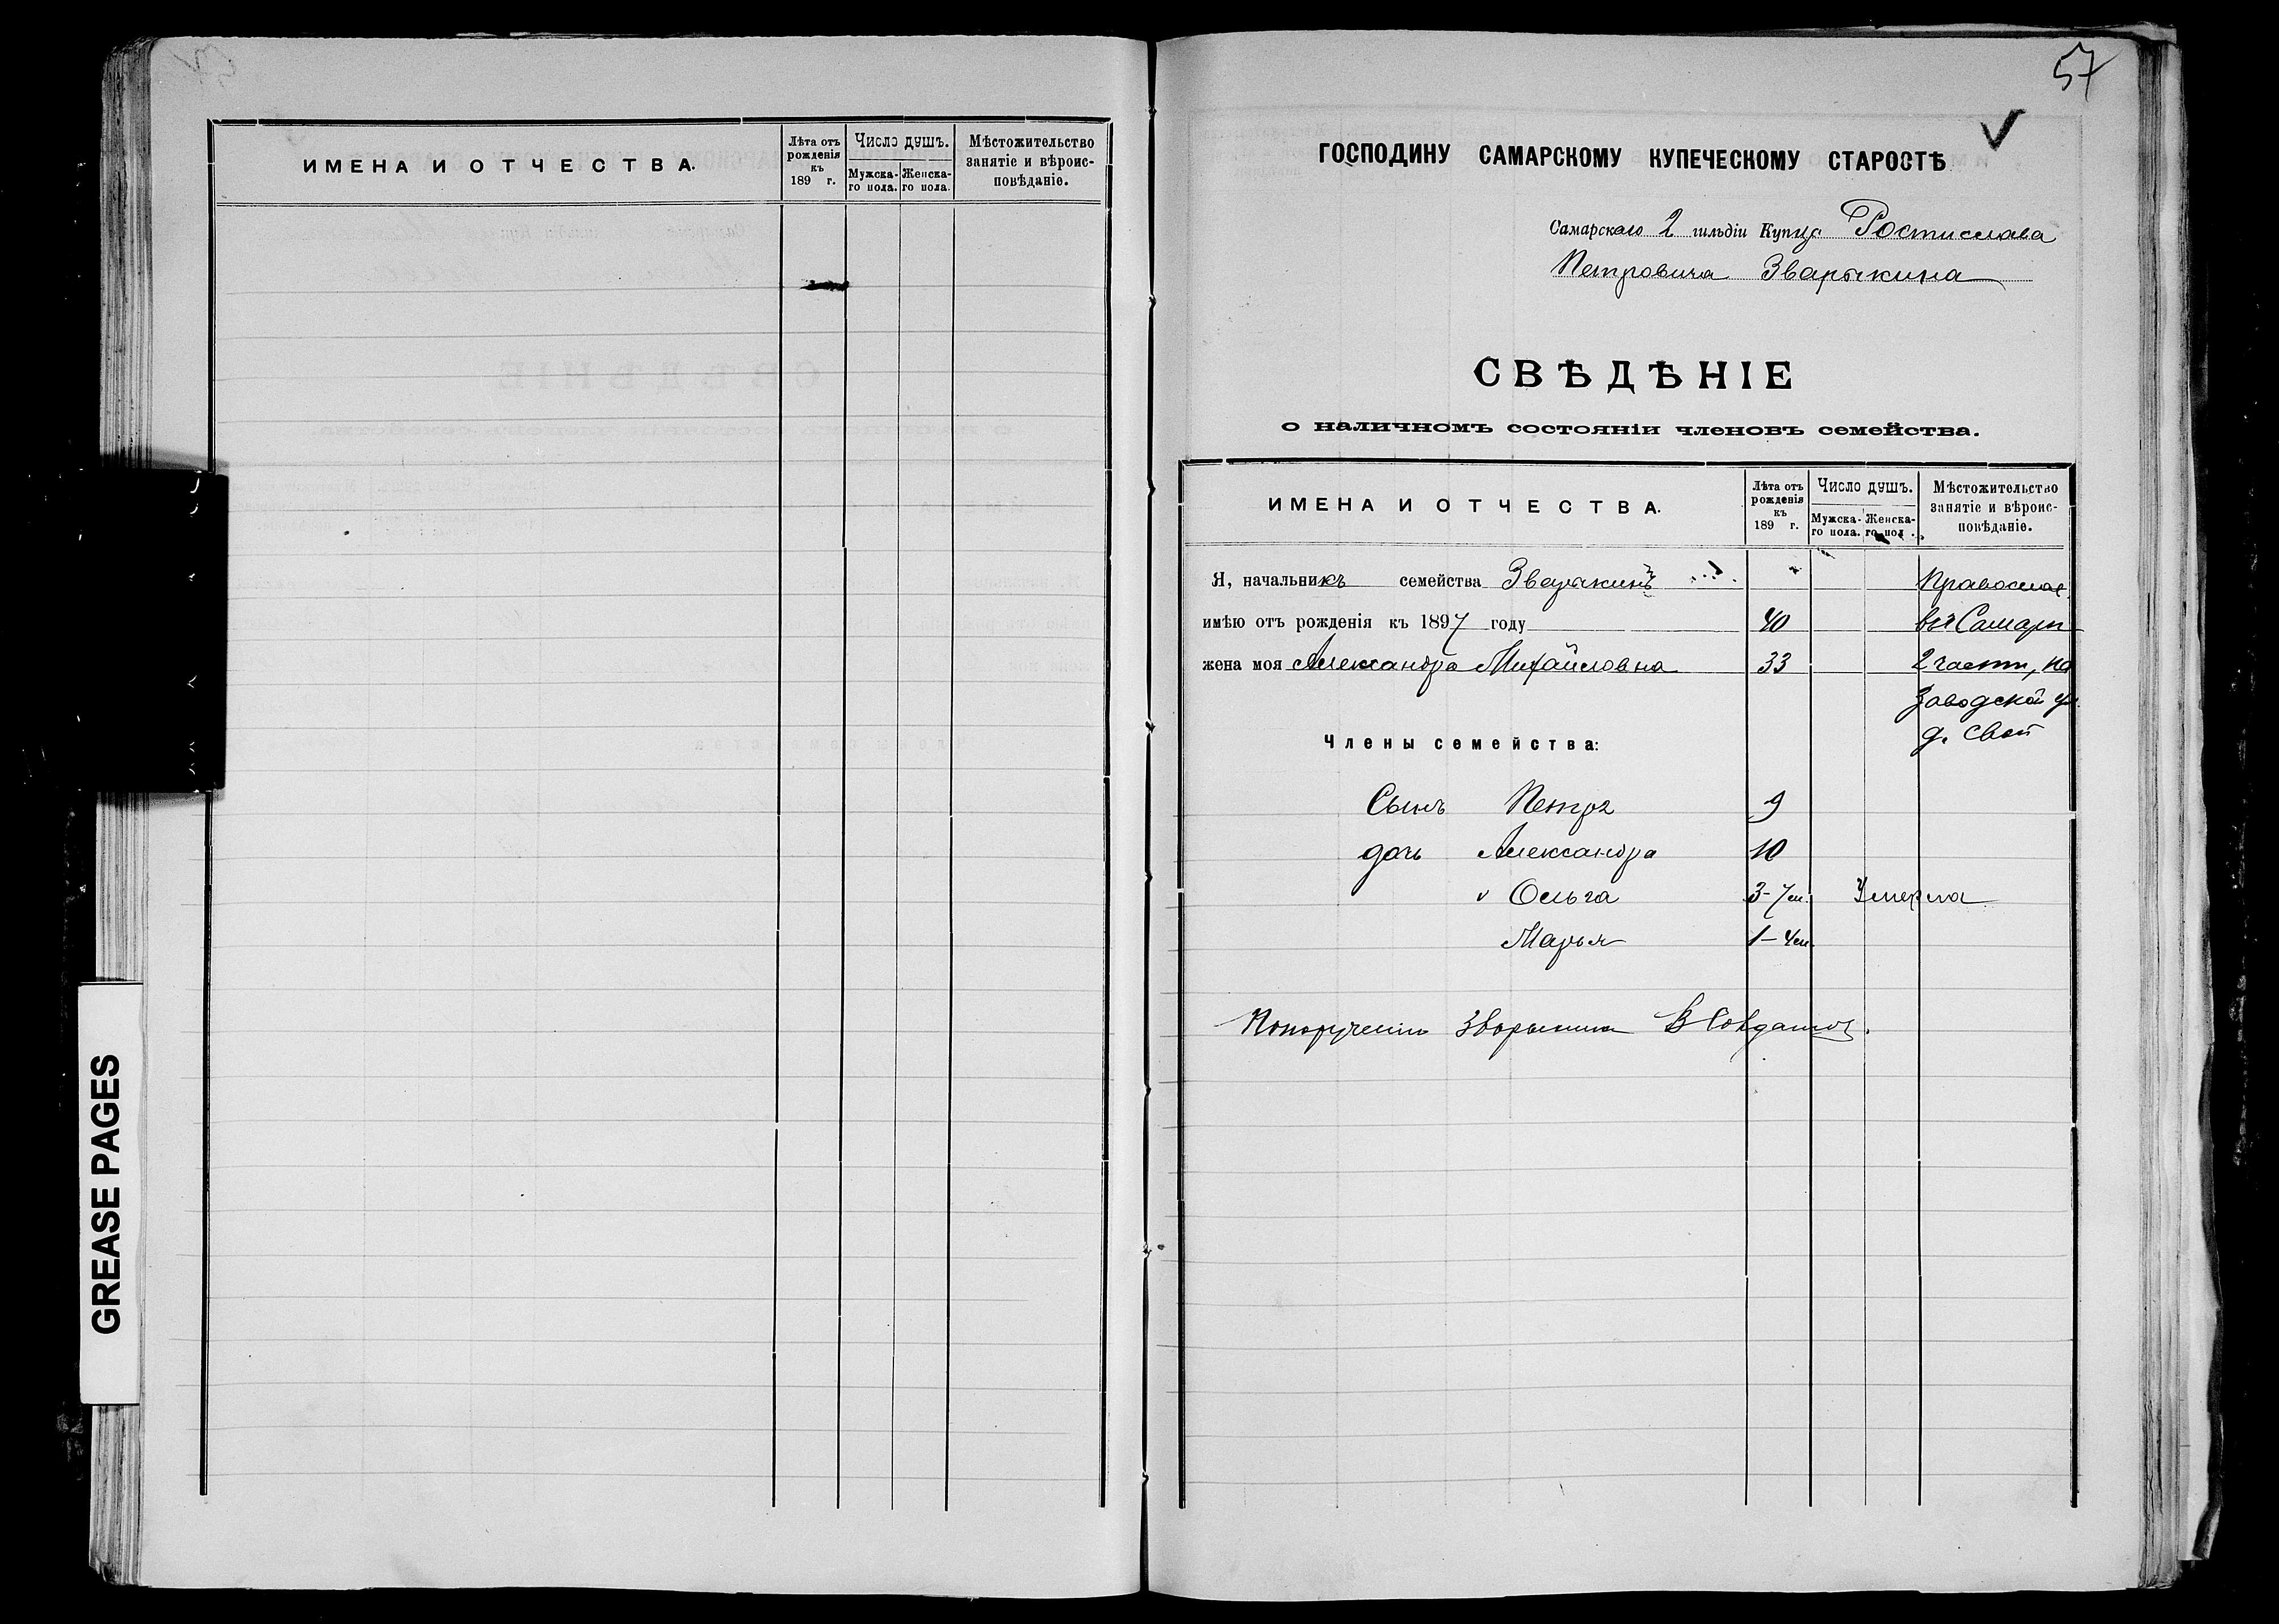 ИМЕНА И ОТЧЕСТВА.
Лѣта отъ рожденія къ 189 г.
Число душъ.
Мужска-го пола.
Женска-го пола.
Мѣстожительство занятіе и вѣроис-повѣданіе.
GREASE PAGES
57
ГОСПОДИНУ САМАРСКОМУ КУПЕЧЕСКОМУ СТАРОСТѢ
Самарскаго 2 гильдіи Купца Ростислава
Петровича Зварыкина
СВѢДѢНІЕ
о наличномъ состояніи членовъ семейства.
ИМЕНА И ОТЧЕСТВА.
Лѣта отъ рожденія къ 189 г.
Число душъ.
Мужска-го пола.
Женска-го пол.
Мѣстожительство занятіе и вѣроис-повѣданіе.
Я, начальникъ семейства Зварыкинъ Православ.
имѣю отъ рожденія къ 1897 году 40 въ Самарѣ
жена моя Александра Михайловна 33 2 части, на
Заводской ул.
Члены семейства: д. свой
Сынъ Петръ 9
дочь Александра 10
" Ольга 3-7 м. Умерла
Марья 1-4 м.
По порученію Зварыкина В